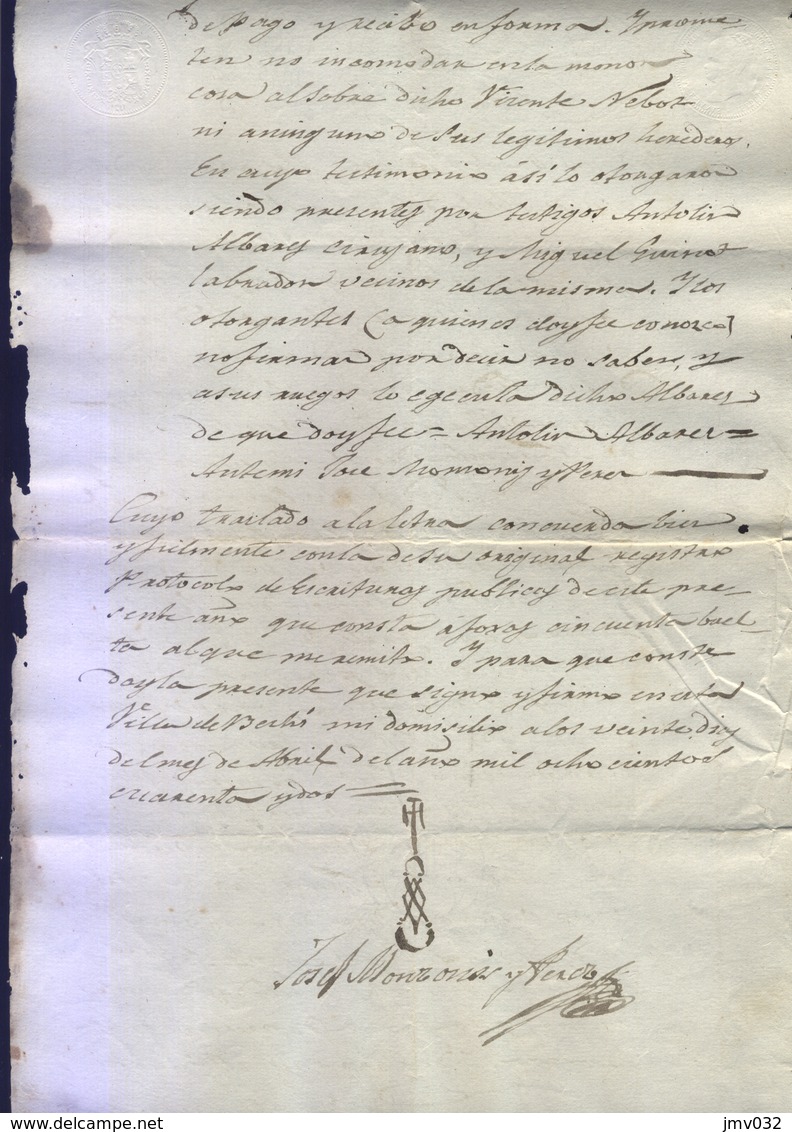 de Pago y recibo en forma. Y prome
ten no incomodar en la menor
cosa al sobre dicho Vicente Nebot
ni a ninguno de sus legitimos herederos.
En cuyo testimonio así lo otorgaron
siendo presentes por testigos Antolin
Albares Cirujano, y Miguel Guinot
labrador vecinos de la misma. Y los
otorgantes (a quienes doy fee conozco)
no firman por decir no saber, y
a sus ruegos lo egecuta dicho Albares
de que doy fee = Antolin Albares =
Antemi Jose Monzonis y Perez
Cuyo traslado a la letra concuerda bien
y fielmente con la de su original registro
Protocolo de Escrituras publicas de este pre-
sente año que consta a foxas cincuenta buel-
ta al que me remito. Y para que conste
doy la presente que signo y firmo en esta
Villa de Bechí mi domisilio a los veinte dias
del mes de Abril del año mil ocho cientos
cuarenta y dos =
Josef Monzonis y Perez
delcampe.net
jmv032